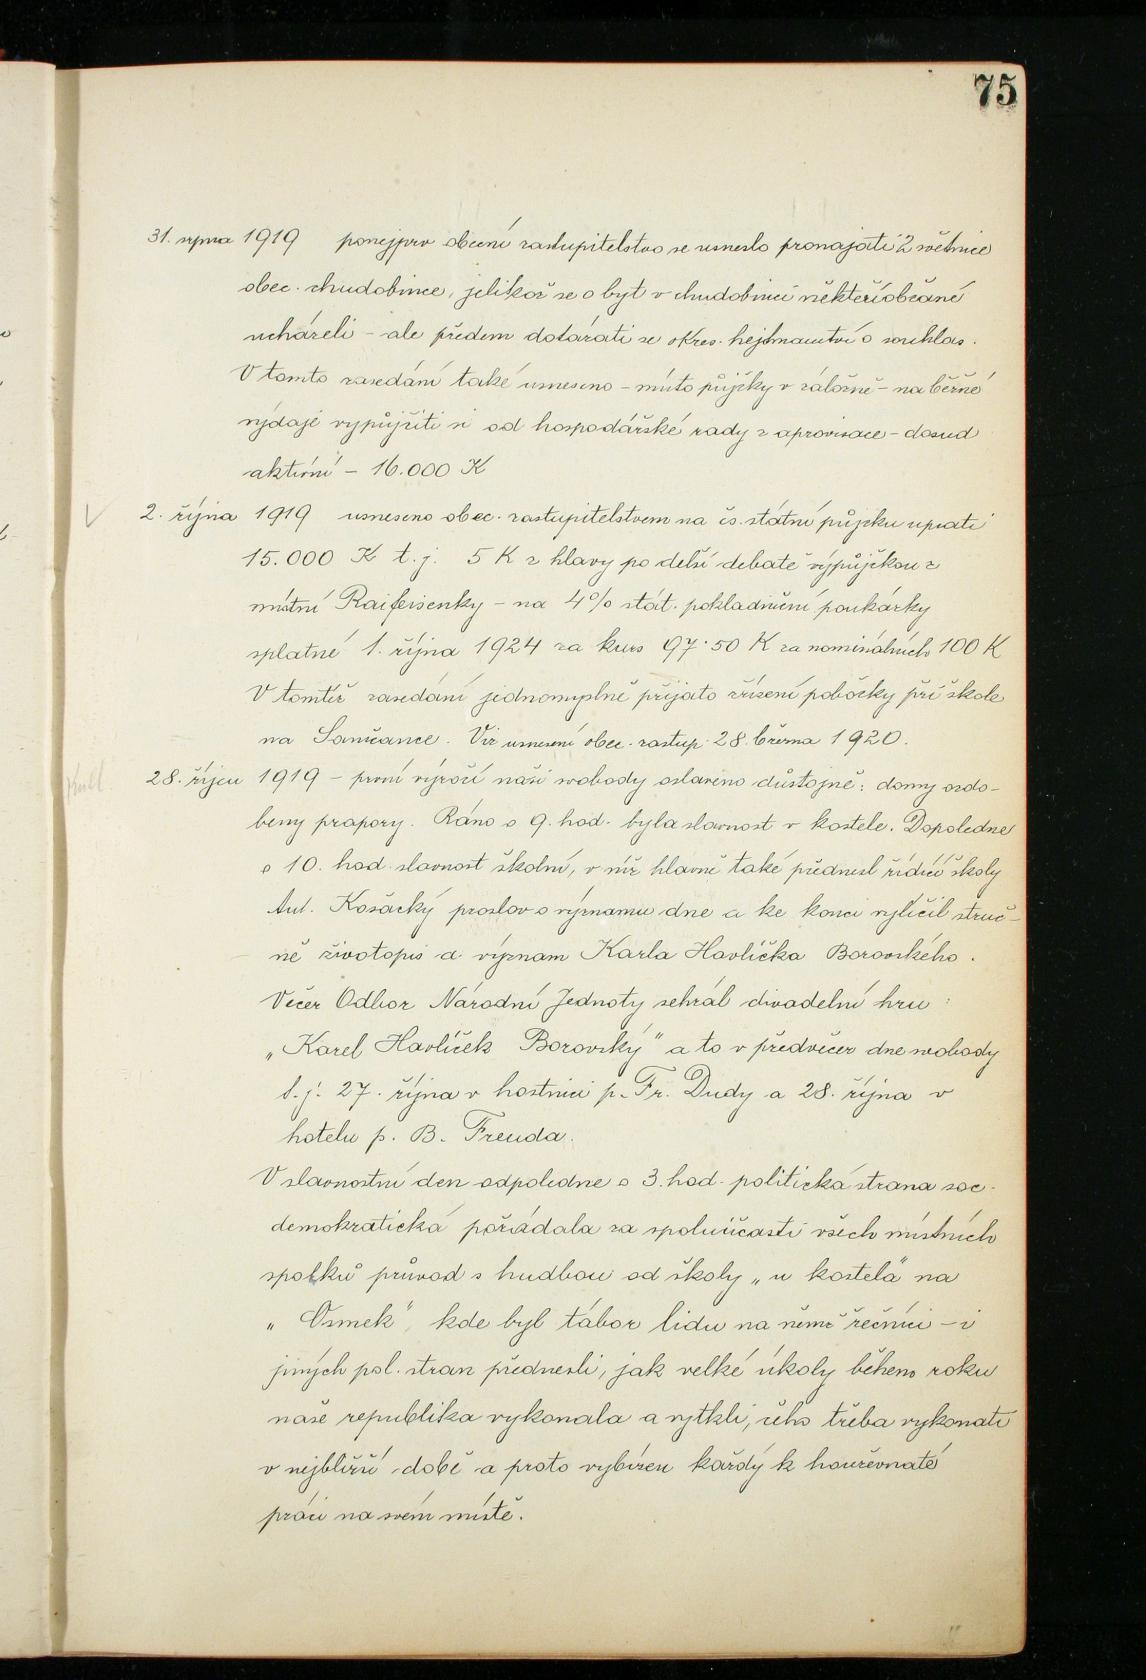 75
31. srpna 1919 ponejprv obecní zastupitelstvo se usneslo pronajati 2 světnice
obec. chudobince, jelikož se o byt v chudobinci někteří občané
ucházeli – ale předem dotázati se okres. hejtmanství o souhlas.
V tomto zasedání také usneseno – místo půjčky v záložně – na běžné
výdaje vypůjčiti si od hospodářské rady z aprovisace – dosud
aktivní – 16.000 K
2. října 1919 usneseno obec. zastupitelstvem na čs. státní půjčku upsati
15.000 K t.j. 5 K z hlavy po delší debatě výpůjčkou z
místní Raifeisenky – na 4% stát. pokladniční poukázky
splatné 1. října 1924 za kurs 97·50 K za nominálních 100 K
V tomtéž zasedání jednomyslně přijato zřízení pobočky při škole
na Samčance. Viz usnesení obec. zastup. 28. března 1920.
28. říjen 1919 – první výročí naší svobody oslaveno důstojně: domy ozdo-
beny prapory. Ráno o 9. hod. byla slavnost v kostele. Dopoledne
o 10. hod. slavnost školní, v níž hlavně také přednesl řídící školy
Ant. Kosácký proslov o významu dne a ke konci vylíčil struč-
ně životopis a význam Karla Havlíčka Borovského.
Večer Odbor Národní Jednoty sehrál divadelní hru:
„Karel Havlíček Borovský" a to v předvečer dne svobody
t.j. 27. října v hostinci p. Fr. Dudy a 28. října v
hotelu p. B. Freuda.
V slavnostní den odpoledne o 3. hod. politická strana soc.
demokratická pořádala za spoluúčasti všech místních
spolků průvod s hudbou od školy „u kostela" na
„Osmek", kde byl tábor lidu na němž řečníci – i
jiných pol. stran přednesli, jak velké úkoly během roku
naše republika vykonala a vytkli, čeho třeba vykonati
v nejbližší době a proto vybízen každý k houževnaté
práci na svém místě.